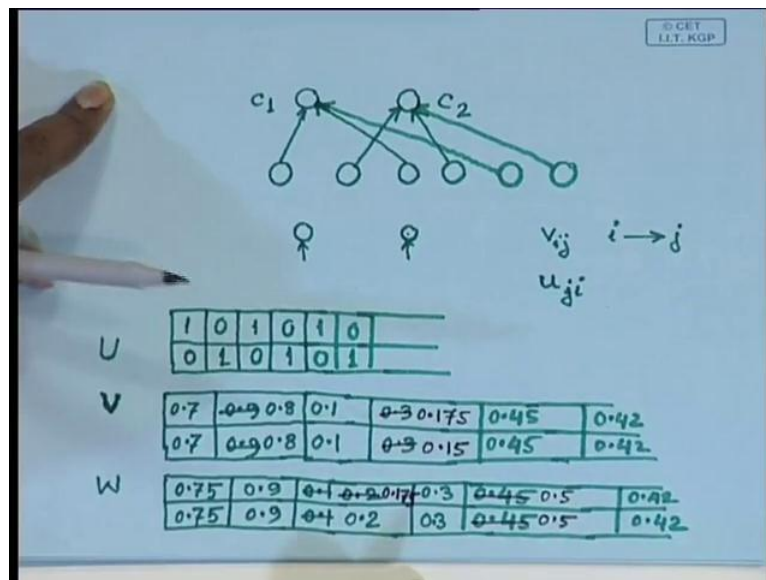 © CET
I.I.T. KGP
C1 C2
Vij i → j
Uji
U
1 0 1 0 1 0
0 1 0 1 0 1
V
0.7 0.9 0.8 0.1 0.3 0.175 0.45 0.42
0.7 0.9 0.8 0.1 0.3 0.15 0.45 0.42
W
0.75 0.9 0.1 0.2 0.175 0.3 0.45 0.5 0.42
0.75 0.9 0.1 0.2 0.3 0.45 0.5 0.42